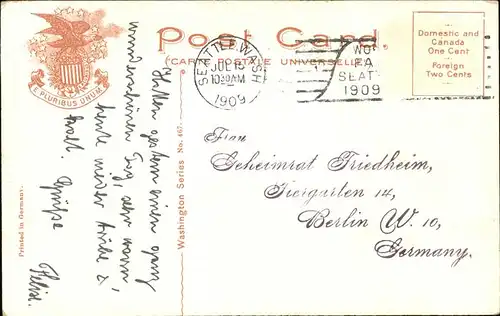 Post Card.
(CARTE POSTALE UNIVERSELLE)
E PLURIBUS UNUM
SEATTLE, WASH
JUL 13
1030AM
1909
WO
FA
SEAT
1909
Domestic and
Canada
One Cent
Foreign
Two Cents
Frau
Geheimrat Friedheim,
Tiergarten 14,
Berlin W. 10,
Germany.
Hatten gestern einen ganz
wunderschönen Tag, sehr warm,
heute wieder trübe &
kalt. Grüße
Washington Series No. 467
Printed in Germany.